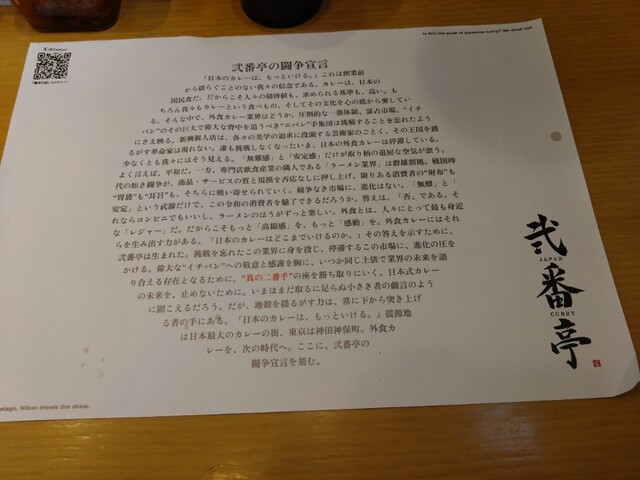 X (旧Twitter)
Is this the peak of Japanese curry? We think not.
弐番亭の闘争宣言
「日本のカレーは、もっといける。」これは創業前
から揺らぐことのない我々の信念である。カレーは、日本の
国民食だ。だからこそ人々の期待値も、求められる基準も、高い。も
ちろん我々もカレーという食べもの、そしてその文化を心の底から愛してい
る。そんな中で、外食カレー業界はどうか。圧倒的な一強体制、寡占市場。“イチ
バン”のその巨大で偉大な背中を追うべき“ニバン”手集団は挑戦することを忘れたよう
にさえ映る。新興個人店は、各々の美学の追求に没頭する芸術家のごとく、その王国を揺
るがす革命家は現れない。誰も挑戦しなくなったいま、日本の外食カレーは停滞している。
少なくとも我々にはそう見える。「無難感」と「安定感」だけが取り柄の退屈な空気が漂う。
よく言えば、平和だ。一方、専門店飲食産業の隣人である「ラーメン業界」は群雄割拠。戦国時
代の如き闘争が、商品・サービスの質と規模を否応なしに押し上げ、限りある消費者の“財布”も
“胃袋”も“耳目”も、そちらに吸い寄せられていく。競争なき市場に、進化はない。「無難」と「
安定」という武器だけで、この令和の消費者を魅了できるだろうか。答えは、「否」である。そ
れならコンビニでもいいし、ラーメンのほうがずっと楽しい。外食とは、人々にとって最も身近
な「レジャー」だ。だからこそもっと「高揚感」を、もっと「感動」を。外食カレーにはそれ
らを生み出す力がある。「日本のカレーはどこまでいけるのか。」その答えを示すために、
弐番亭は生まれた。挑戦を忘れたこの業界に身を投じ、停滞するこの市場に、進化の圧を
かける。偉大な“イチバン”への敬意と感謝を胸に、いつか同じ土俵で業界の未来を語
り合える存在となるために。“真の二番手”の座を勝ち取りにいく。日本式カレー
の未来を、止めないために。いまはまだ取るに足らぬ小さき者の戯言のよう
に聞こえるだろう。だが、地殻を揺るがす力は、常に下から突き上げ
る者の手にある。「日本のカレーは、もっといける。」震源地
は日本最大のカレーの街、東京は神田神保町。外食カ
レーを、次の時代へ。ここに、弐番亭の
闘争宣言を刻む。
弐番亭
JAPAN
CURRY
stage, Niban steals the show.